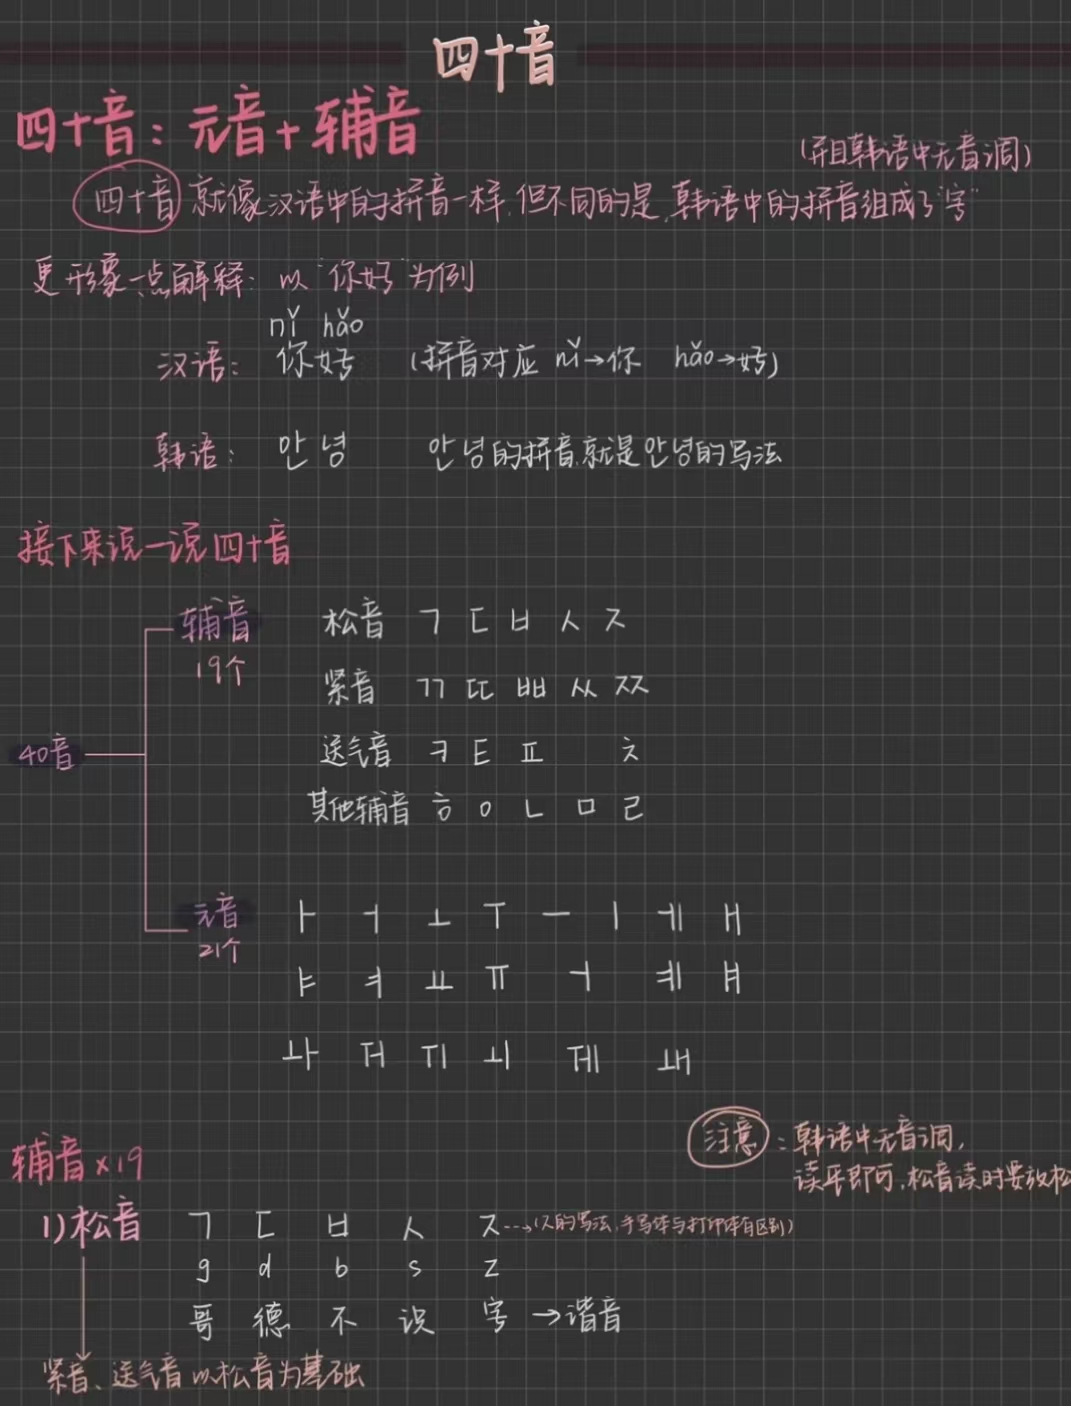 四十音
四十音：元音+辅音
(并且韩语中无音调)
四十音就像汉语中的拼音一样,但不同的是,韩语中的拼音组成了"字"
更形象一点解释：以"你好"为例
nǐ hǎo
汉语：你好 (拼音对应 nǐ→你 hǎo→好)
韩语：안녕 안녕的拼音,就是안녕的写法
接下来说一说四十音
辅音 松音 ㄱ ㄷ ㅂ ㅅ ㅈ
19个
紧音 ㄲ ㄸ ㅃ ㅆ ㅉ
40音 送气音 ㅋ ㅌ ㅍ ㅊ
其他辅音 ㅎ ㅇ ㄴ ㅁ ㄹ
元音 ㅏ ㅓ ㅗ ㅜ ㅡ ㅣ ㅔ ㅐ
21个
ㅑ ㅕ ㅛ ㅠ ㅓ ㅖ ㅒ
ㅘ ㅝ ㅟ ㅚ ㅞ ㅙ
注意：韩语中无音调,
读平即可,松音读时要放松
辅音×19
1)松音 ㄱ ㄷ ㅂ ㅅ ㅈ--→(ㅈ的写法,手写体与打印体有区别)
g d b s z
哥 德 不 说 字 →谐音
紧音、送气音以松音为基础